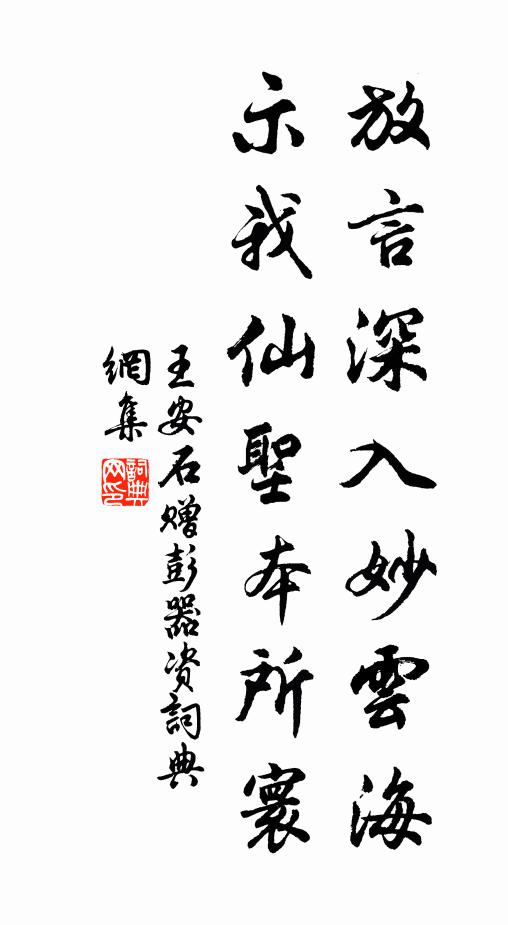 放言深入妙雲海
示我仙聖本所寰
王安石赠彭器资詞典
網集
詞典網印